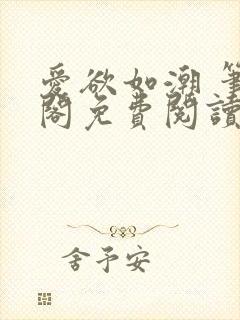 愛欲如潮 筆
閣免費閱讀
舍予安